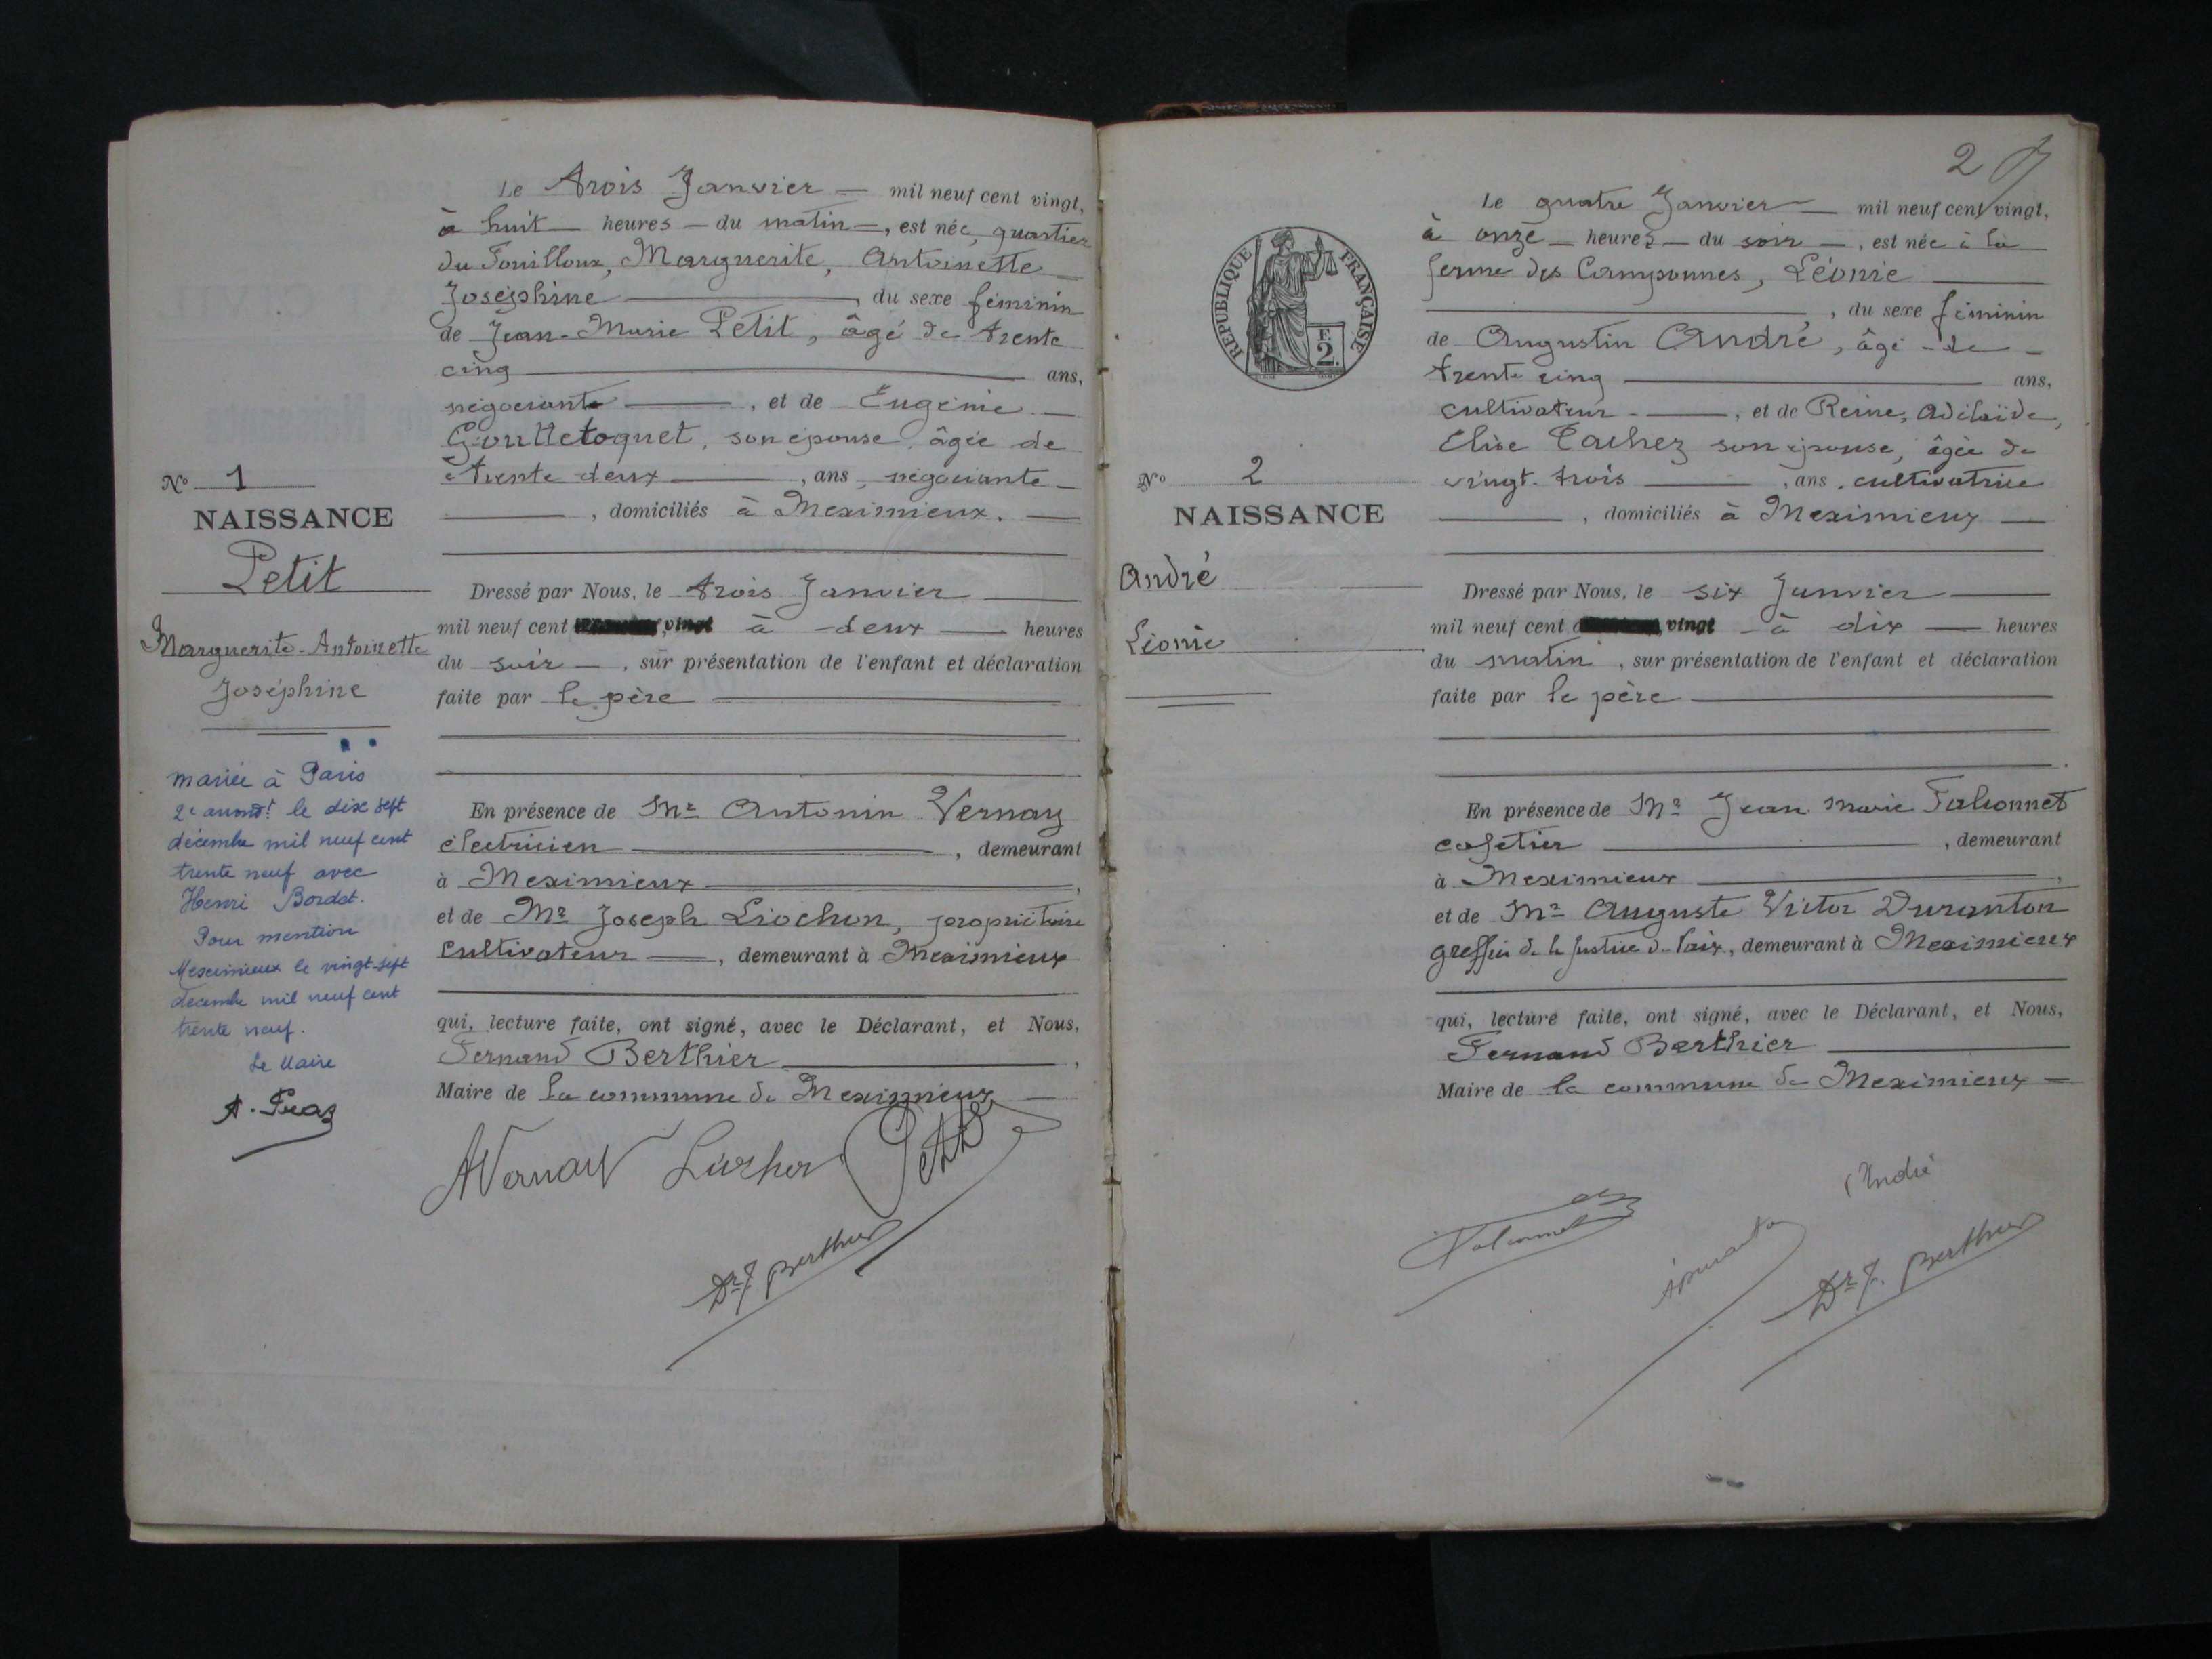 Le trois Janvier — mil neuf cent vingt,
à huit — heures — du matin —, est née, quartier
du Fouilloux, Marguerite, Antoinette
Joséphine —, du sexe féminin
de Jean-Marie Petit, âgé de trente
cinq — ans,
négociant —, et de Eugénie —
son épouse, âgée de
trente deux —, ans, négociante —
—, domiciliés à Meximieux. —
Dressé par Nous, le trois Janvier —
mil neuf cent vingt à — deux — heures
du soir —, sur présentation de l'enfant et déclaration
faite par le père —
En présence de Mr Antonin Vernay
électricien —, demeurant
à Meximieux —,
et de Mr Joseph Liochon, propriétaire
cultivateur —, demeurant à Meximieux
qui, lecture faite, ont signé, avec le Déclarant, et Nous,
Fernand Berthier —,
Maire de la commune de Meximieux —
AVernay Liochon Petit
Dr F. Berthier
No 1
NAISSANCE
Petit
Marguerite-Antoinette
Joséphine
mariée à Paris
2e arrondt le dix sept
décembre mil neuf cent
trente neuf avec
Henri Bordet.
Pour mention
Meximieux le vingt-sept
décembre mil neuf cent
trente neuf.
Le Maire
2
Le quatre Janvier — mil neuf cent vingt,
à onze — heures — du soir —, est née à la
ferme des Camponnes, Léonie —
—, du sexe féminin
de Augustin André, âgé — de —
trente cinq — ans,
cultivateur —, et de Reine, Adélaïde,
Elise son épouse, âgée de
vingt-trois —, ans, cultivatrice
—, domiciliés à Meximieux —
Dressé par Nous, le six Janvier —
mil neuf cent vingt — à dix — heures
du matin, sur présentation de l'enfant et déclaration
faite par le père —
En présence de Mr Jean Marie Falconnet
cafetier —, demeurant
à Meximieux —,
et de Mr Auguste Victor Duranton
greffier de la Justice de Paix, demeurant à Meximieux
qui, lecture faite, ont signé, avec le Déclarant, et Nous,
Fernand Berthier —
Maire de la commune de Meximieux —
André
Falconnet
Dr F. Berthier
REPUBLIQUE FRANÇAISE
F.
2.
No 2
NAISSANCE
André
Léonie